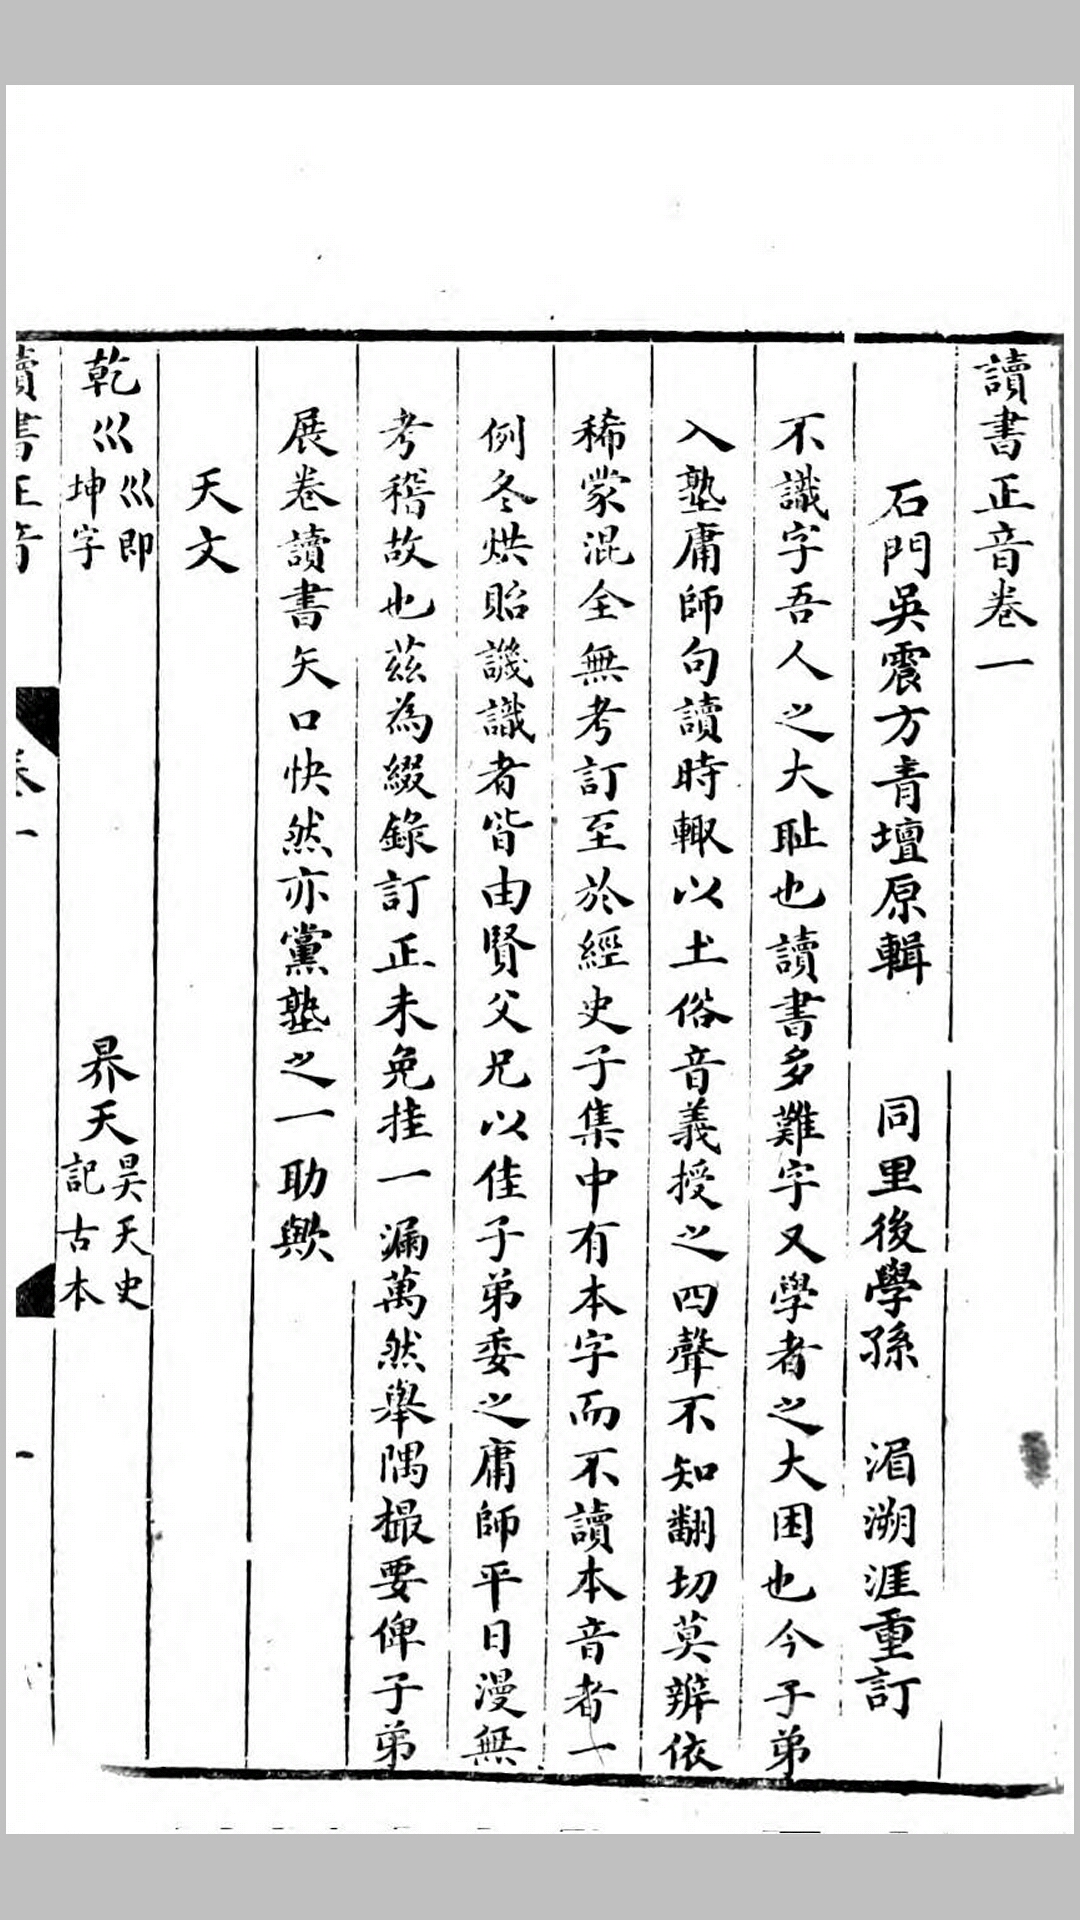 讀書正音卷一
石門吳震方青壇原輯 同里後學孫 湄溯涯重訂
不識字吾人之大耻也讀書多難字又學者之大困也今子弟
入塾庸師句讀時輙以土俗音義授之四聲不知翻切莫辨依
稀蒙混全無考訂至於經史子集中有本字而不讀本音者一
例冬烘貽譏識者皆由賢父兄以佳子弟委之庸師平日漫無
考稽故也茲為綴錄訂正未免挂一漏萬然舉隅撮要俾子弟
展卷讀書矢口快然亦黨塾之一助歟
天文
乾巛 巛即坤字 昦天 昊天史記古本
讀書正音 卷一 一